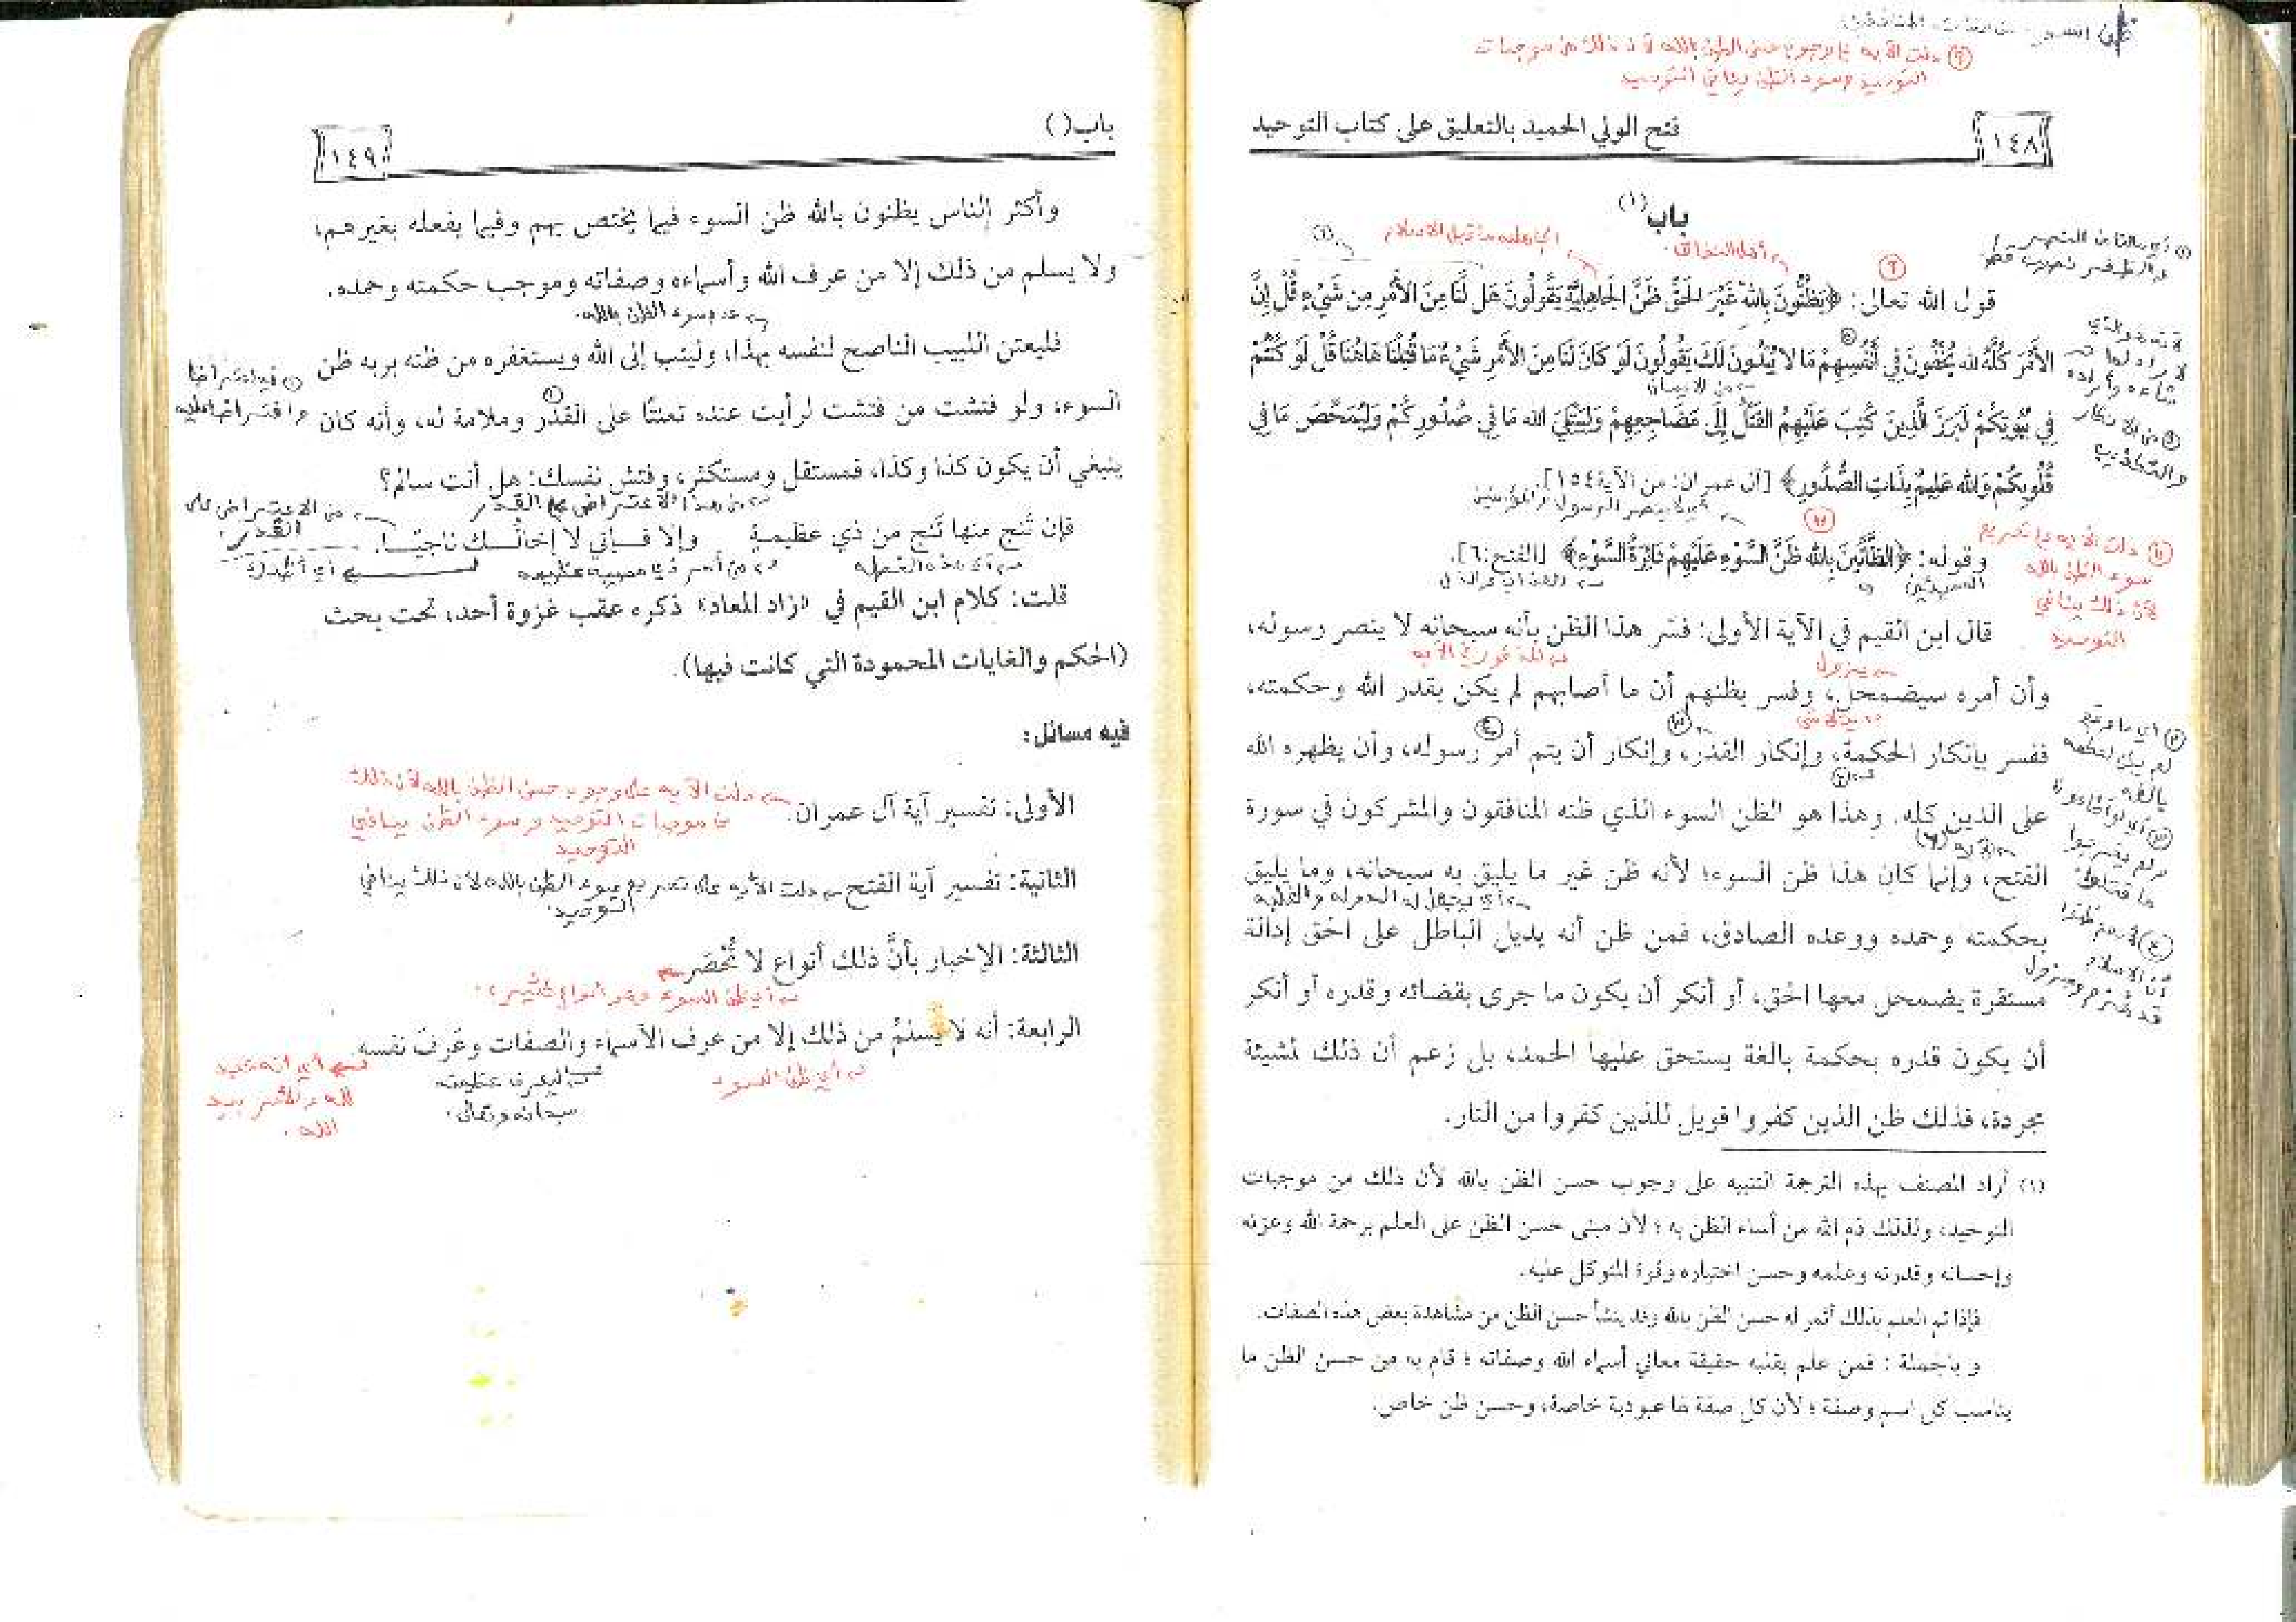 فتح الولي الحميد بالتعليق على كتاب التوحيد
١٤٨
باب(١)
أهل النفاق
الجاهلية ما قبل الإسلام
قول الله تعالى: ﴿يَظُنُّونَ بِاللهِ غَيْرَ الْحَقِّ ظَنَّ الْجَاهِلِيَّةِ يَقُولُونَ هَل لَّنَا مِنَ الأَمْرِ مِن شَيْءٍ قُلْ إِنَّ
الأَمْرَ كُلَّهُ لله يُخْفُونَ فِي أَنْفُسِهِمْ مَا لا يُبْدُونَ لَكَ يَقُولُونَ لَوْ كَانَ لَنَا مِنَ الأَمْرِ شَيْءٌ مَا قُتِلْنَا هَاهُنَا قُلْ لَوْ كُنْتُمْ
فِي بُيُوتِكُمْ لَبَرَزَ الَّذِينَ كُتِبَ عَلَيْهِمُ القَتْلُ إِلَى مَضَاجِعِهِمْ وَلِيَبْتَلِيَ الله مَا فِي صُدُورِكُمْ وَلِيُمَحِّصَ مَا فِي
قُلُوبِكُمْ وَالله عَلِيمٌ بِذَاتِ الصُّدُورِ﴾ [آل عمران: من الآية١٥٤].
وقوله: ﴿الظَّانِّينَ بِالله ظَنَّ السَّوْءِ عَلَيْهِمْ دَائِرَةُ السَّوْءِ﴾ [الفتح:٦].
قال ابن القيم في الآية الأولى: فسّر هذا الظن بأنه سبحانه لا ينصر رسوله،
وأن أمره سيضمحل، وفسر بظنهم أن ما أصابهم لم يكن بقدر الله وحكمته،
ففسر بإنكار الحكمة، وإنكار القدر، وإنكار أن يتم أمر رسوله، وأن يظهره الله
على الدين كله. وهذا هو الظن السوء الذي ظنه المنافقون والمشركون في سورة
الفتح، وإنما كان هذا ظن السوء؛ لأنه ظن غير ما يليق به سبحانه، وما يليق
بحكمته وحمده ووعده الصادق، فمن ظن أنه يديل الباطل على الحق إدالة
مستقرة يضمحل معها الحق، أو أنكر أن يكون ما جرى بقضائه وقدره أو أنكر
أن يكون قدره بحكمة بالغة يستحق عليها الحمد، بل زعم أن ذلك لمشيئة
مجردة، فذلك ظن الذين كفروا فويل للذين كفروا من النار.
(١) أراد المصنف بهذه الترجمة التنبيه على وجوب حسن الظن بالله لأن ذلك من موجبات
التوحيد، ولذلك ذم الله من أساء الظن به؛ لأن مبنى حسن الظن على العلم برحمة الله وعزته
وإحسانه وقدرته وعلمه وحسن اختياره وقوة المتوكل عليه.
فإذا تم العلم بذلك أثمر له حسن الظن بالله وقد ينشأ حسن الظن من مشاهدة بعض هذه الصفات.
وبالجملة: فمن علم بقلبه حقيقة معاني أسماء الله وصفاته؛ قام به من حسن الظن ما
يناسب كل اسم وصفة؛ لأن كل صفة لها عبودية خاصة، وحسن ظن خاص.
① دلت الآية على تحريم
سوء الظن بالله
لأن ذلك ينافي
التوحيد
باب( )
١٤٩
وأكثر الناس يظنون بالله ظن السوء فيما يختص بهم وفيما يفعله بغيرهم،
ولا يسلم من ذلك إلا من عرف الله وأسماءه وصفاته وموجب حكمته وحمده.
فليعتن اللبيب الناصح لنفسه بهذا، وليتب إلى الله ويستغفره من ظنه بربه ظن
السوء، ولو فتشت من فتشت لرأيت عنده تعنتًا على القدر وملامة له، وأنه كان
ينبغي أن يكون كذا وكذا، فمستقل ومستكثر، وفتش نفسك: هل أنت سالم؟
من هذا الاعتراض على القدر
من الاعتراض على القدر
فإن تنج منها تنج من ذي عظيمة وإلا فإني لا إخالك ناجيًا
أي هذه الخصلة
أي أظنك
قلت: كلام ابن القيم في «زاد المعاد» ذكره عقب غزوة أحد، تحت بحث
(الحكم والغايات المحمودة التي كانت فيها).
فيه مسائل:
الأولى: تفسير آية آل عمران.
دلت الآية على وجوب حسن الظن بالله لأن ذلك
من موجبات التوحيد وسوء الظن ينافي
التوحيد
الثانية: تفسير آية الفتح
دلت الآية على تحريم سوء الظن بالله لأن ذلك ينافي
التوحيد.
الثالثة: الإخبار بأنَّ ذلك أنواع لا تُحْصَر
أي ظن السوء وهو أنواع كثيرة.
الرابعة: أنه لا يسلمُ من ذلك إلا من عرف الأسماء والصفات وعَرَفَ نفسه.
أي ظن السوء
ليعرف عظمته
سبحانه وتعالى.
أي أنه عبد
لله والأمر بيد
الله.